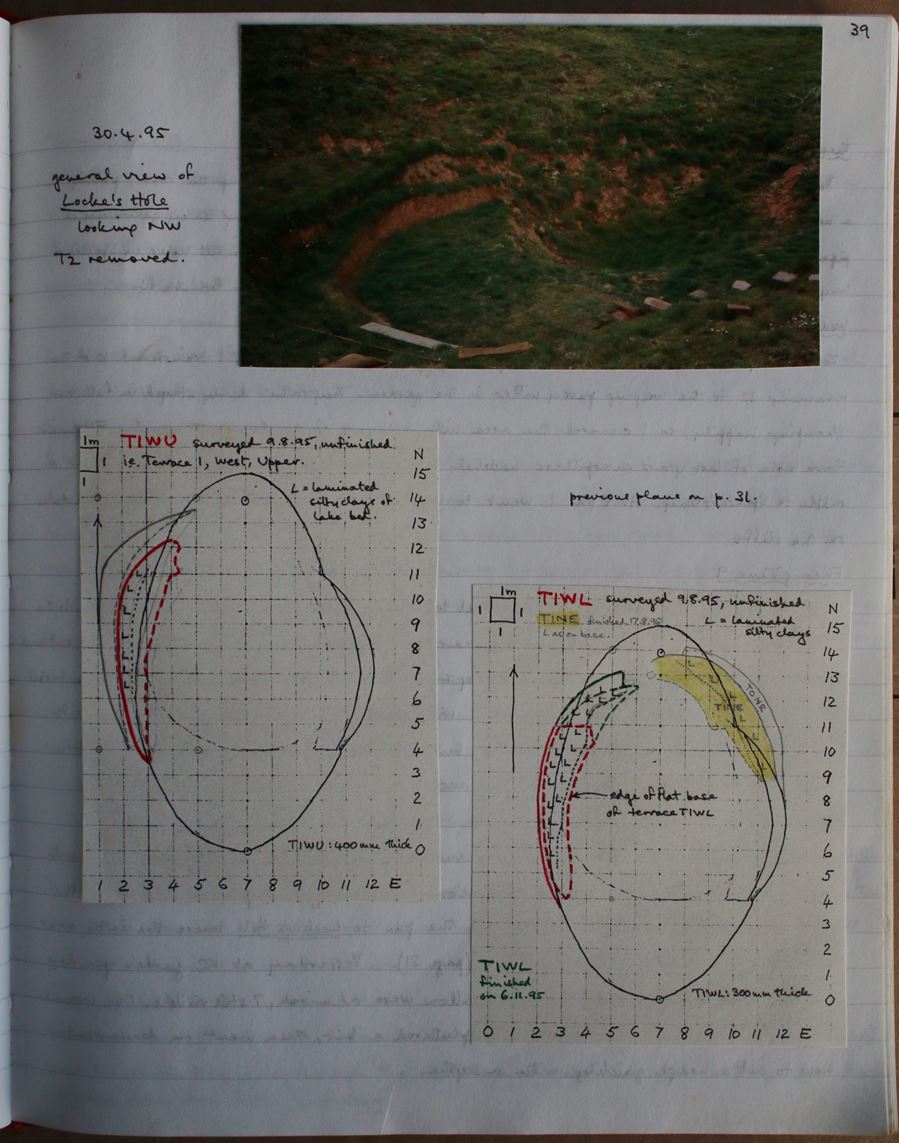 39
30.4.95
general view of
Locke's Hole
looking NW
T2 removed.
1m
1
1
TIWU surveyed 9.8.95, unfinished
ie. Terrace 1, West, Upper.
L = laminated
silty clays of
lake bed.
N
15
14
13
12
11
10
9
8
7
6
5
4
3
2
1
0
TIWU: 400mm thick
1 2 3 4 5 6 7 8 9 10 11 12 E
previous plans on p. 31.
1m
1
1
1
TIWL surveyed 9.8.95, unfinished
TINE finished 17.8.95
L as on base.
L = laminated
silty clays
N
15
14
13
12
11
10
9
8
7
6
5
4
3
2
1
0
TONE
TINE
edge of flat base
of terrace TIWL
TIWL
finished
on 6.11.95
TIWL: 300mm thick
0 1 2 3 4 5 6 7 8 9 10 11 12 E